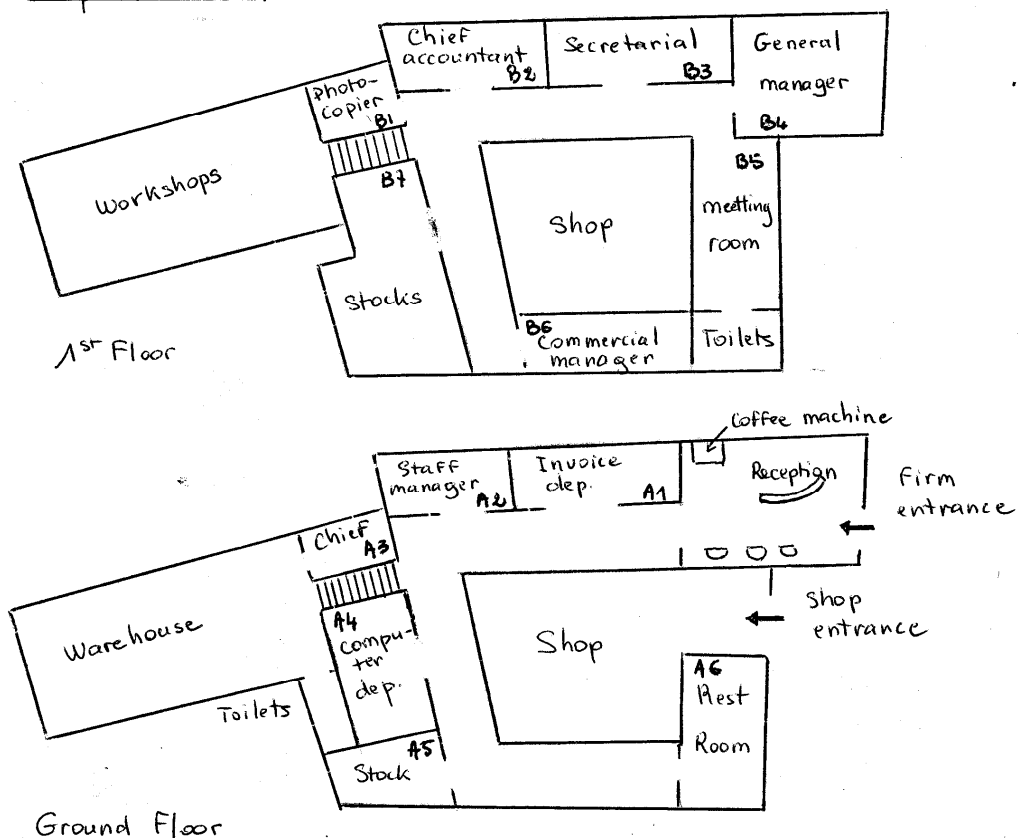 Chief
accountant
B2
Secretarial
B3
General
manager
B4
Photo-
copier
B1
B7
Workshops
B5
meetting
room
Shop
Stocks
B6
Commercial
manager
Toilets
1st Floor
Coffee machine
Staff
manager
A2
Invoice
dep.
A1
Reception
Firm
entrance
Chief
A3
Shop
entrance
Warehouse
A4
compu-
ter
dep.
Shop
A6
Rest
Room
Toilets
A5
Stock
Ground Floor